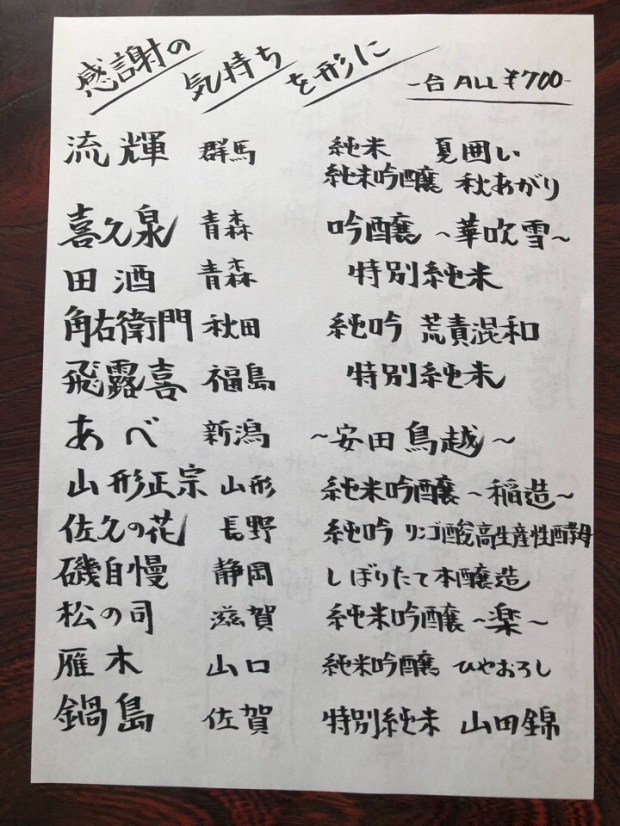 感謝の 気持ち を形に
一合 ALL ¥700-
流輝 群馬 純米 夏囲い
純米吟醸 秋あがり
喜久泉 青森 吟醸 ~華吹雪~
田酒 青森 特別純米
角右衛門 秋田 純吟 荒責混和
飛露喜 福島 特別純米
あべ 新潟 ~安田鳥越~
山形正宗 山形 純米吟醸 ~稲造~
佐久の花 長野 純吟 リンゴ酸高生産性酵母
磯自慢 静岡 しぼりたて本醸造
松の司 滋賀 純米吟醸 ~楽~
雁木 山口 純米吟醸 ひやおろし
鍋島 佐賀 特別純米 山田錦